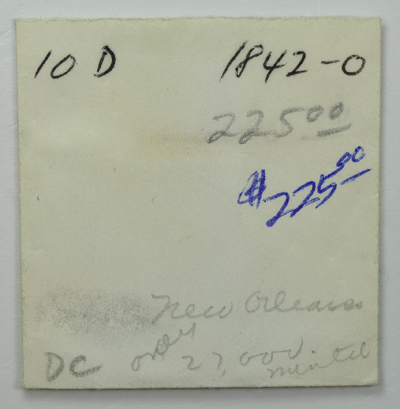 10 D 1842-0
225.00
$225.00
New Orleans
DC only 27,000 minted